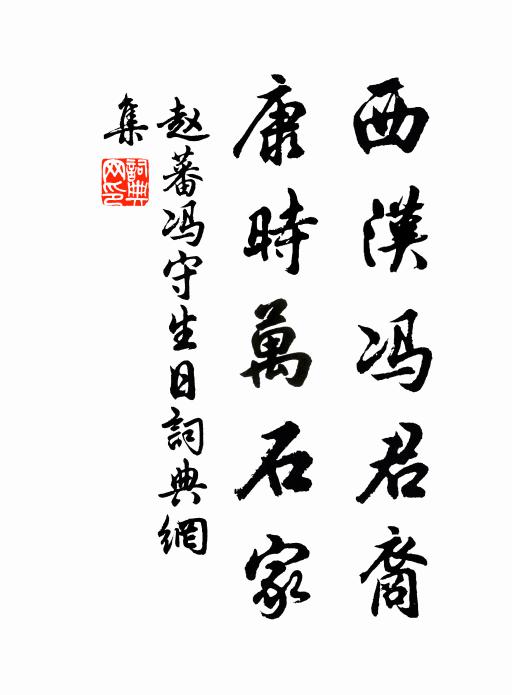 西漢冯君裔
康時萬石家
赵蕃冯守生日詞典網
集
詞典網印